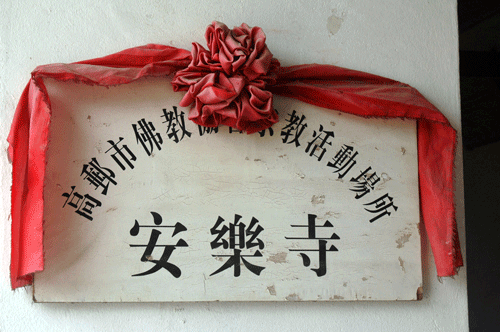 高郵市佛教協會宗教活動場所
安樂寺